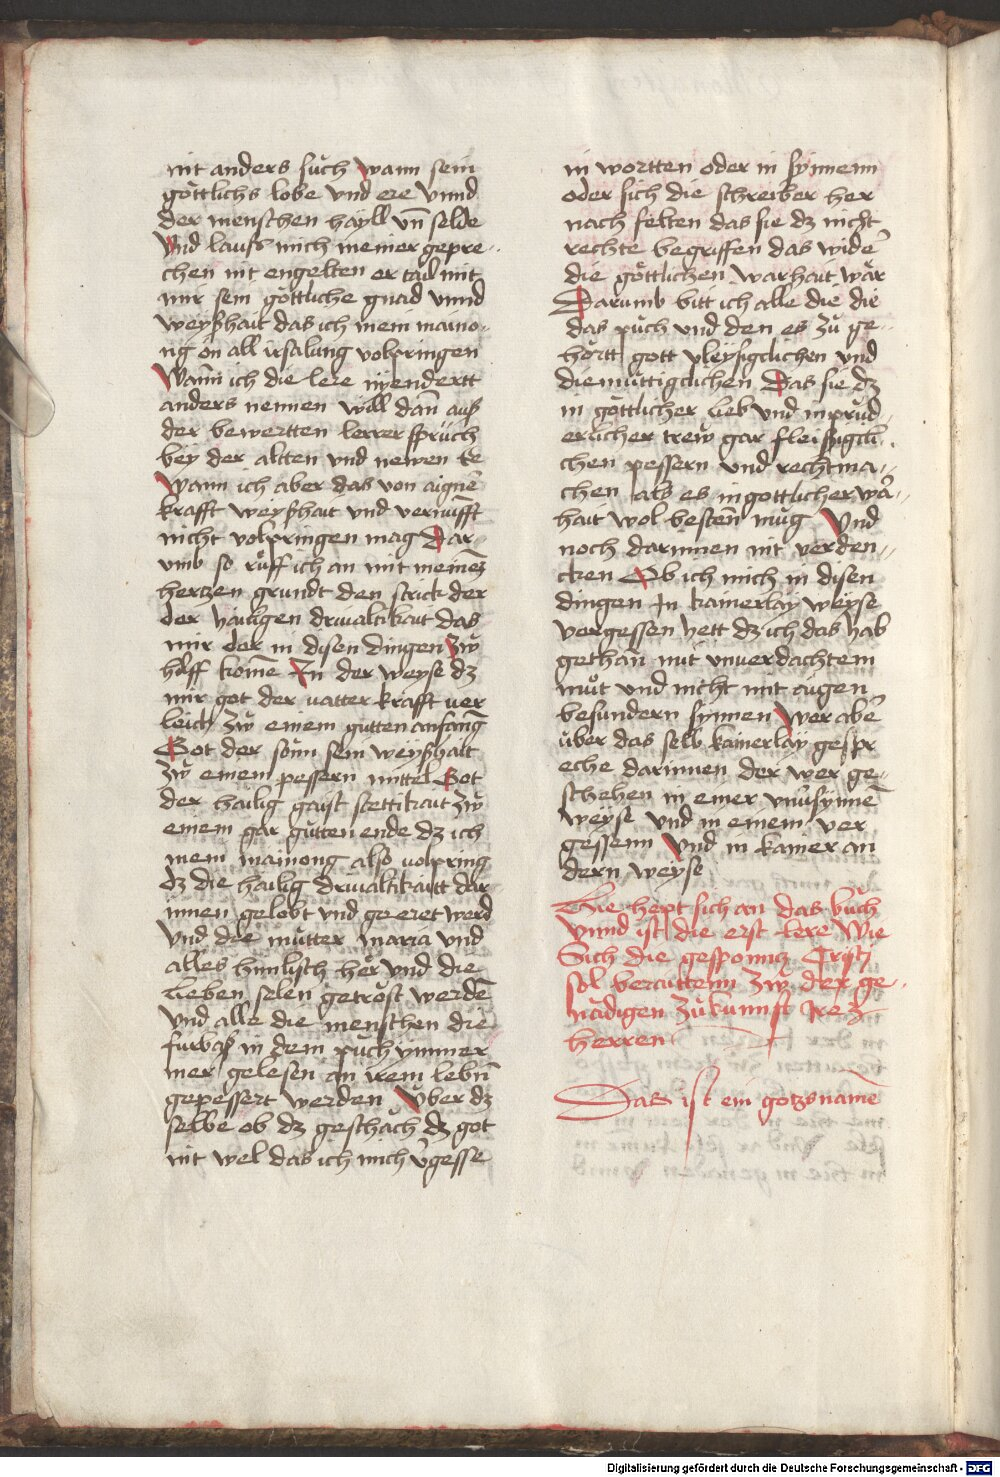 nit anders such wann sein
göttlichs lobe vnd ere vnnd
der menschen hayll vn̄ selde
vnd lauss mich meiner gepre-
chen nit engelten er tail mit
mir sein göttliche gnad vnnd
weyßhait das ich mein maino-
ng ön all irsalung volpringen
Wann̄ ich die lere nyendertt
anders nennen will dañ auß
der bewertten lerrer sprüch
bey der altten vnd newen ee
Wann ich aber das von aigne͂
krafft weyßhait vnd vernu̅fft
nicht volpringen mag Dar-
vmb so rüff ich an mit meinez
hertzen grundt den strick der
der hailigen driualtikait das
mir der in disen dingen zw̆
hilff kome͂ In der weyse dz
mir got der vatter krafft ver
leich zw̆ einem gutten anfang
Got der sonn sein weyßhait
zw̆ einem pessern mittel Got
der hailig gaist stettikait zw̆
einem gar gutten ende dz ich
mein mainong also volpring
dz die hailig driualtikaitt dar
innen gelobt vnd ge eret werd
vnd die mütter maria vnd
alles himlisch her vnd die
lieben selen getröst werde͂
vnd alle die menschen die
fürbaß in dem püch ymmer
mer gelesen an irem lebn̄
gepessert werden Vber dz
selbe ob dz geschäch dz got
nit wel das ich mich v̉gesse
in wortten oder in synnenn
oder sich die schreiber her
nach felten das sie dz nicht
rechte begriffen das wide͂
die göttlichen warhait wär
Darumb bitt ich alle die die
das püch vnd den es zü ge-
hörtt gott vleysigclichen vnd
diemüttigclichen Das sie dz
in göttlicher lieb vnd in prüd
erlicher trew gar fleissigcli-
chen pessern vnd rechtma-
chen als es in gottlicher wa͂-
hait wol besten̄ mug Vnd
noch darinnen nit verden-
cken Ob ich mich in disen
dingen In kainerlay weyse
vergessen hett dz ich das hab
gethan mit vnuerdachtem
müt vnd nicht mit aigen
besundern synnen Wer abe͂
über das selb kainerlay gespr
eche darinnen der wer ge-
schehen in einer vnu̅synne͂
weyse vnd in einem ver
gessenn Vnd in kainer an
dern weyse
Hie hept sich an das büch
vnnd ist die erst lere Wie
Sich die gesponntz Cristj
sol beraittenn zw̆ der ge-
nädigen zükunnft Irez
herren
Das ist ein gotzsname͂
Digitalisierung gefördert durch die Deutsche Forschungsgemeinschaft - DFG